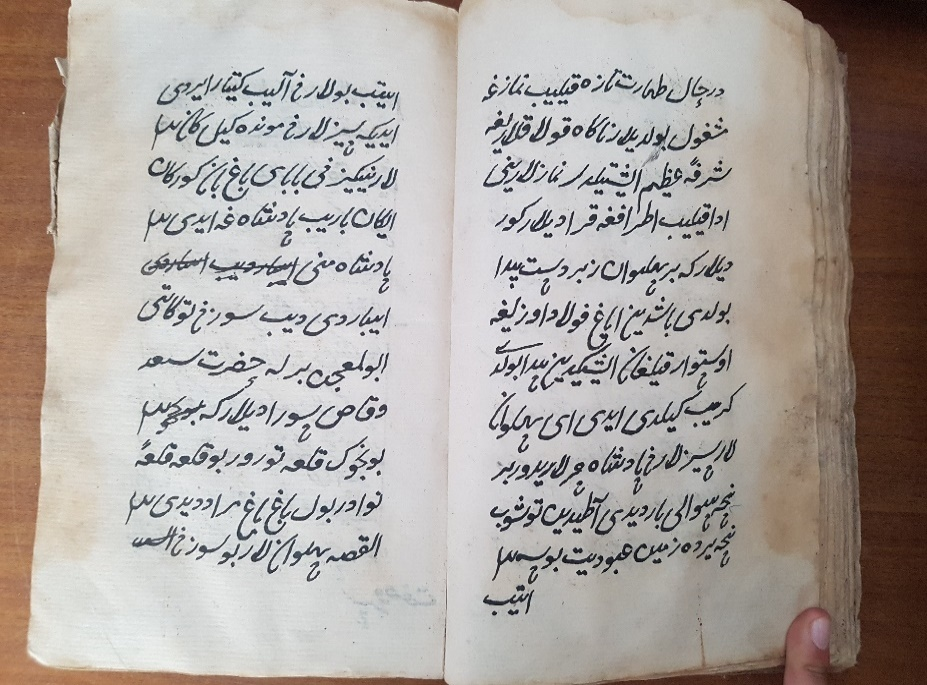 درحال طهارت تازه قیلیب نمازغه
مشغول بولدیلار ناکاه قولاقلاریغه
شرفهٔ عظیم ایشتیلدی نمازلارینی
ادا قیلیب اطرافغه قرادیلار کور
دیلارکه بر پهلوان زبردست پیدا
بولدی باشدین ایاغی فولاد اوزیغه
اوستوار قیلغان ایشیکدین پیدا بولدی
کریب کیلدی ایدی ای پهلوان
لار سیزلارنی پادشاه چرلایدور بر
نچه سوالی بار دیدی آطیدین توشوب
نچه یرده زمین عبودیت بوسه
ایتیب
ایتیب بولارنی آلیب کیتار ایردی
ایدیکه سیزلارنی مونده کیل کان
لارینکیزنی بابای باغبان کورکان
ایکان باریب پادشاه غه ایدی
پادشاه منی
ایباردی دیب سوزنی توکاتتی
ابوالمعجن برله حضرت سعد
وقاص سورادیلارکه
بو نچوک قلعه تورور بو قلعه قلعهٔ
نوادر بول باغ باغ مراد دیدی
القصه پهلوانلار بو سوزنی